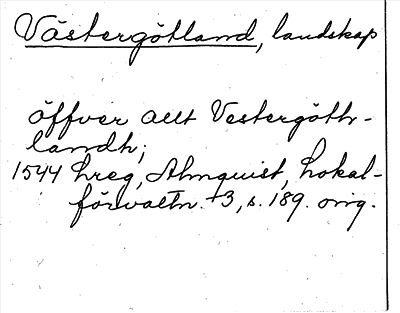 Västergötland, landskap
öffver allt Vestergöth-
landh;
1544 hreg, Almquist, Lokal-
förvaltn. +3, s. 189. orig.